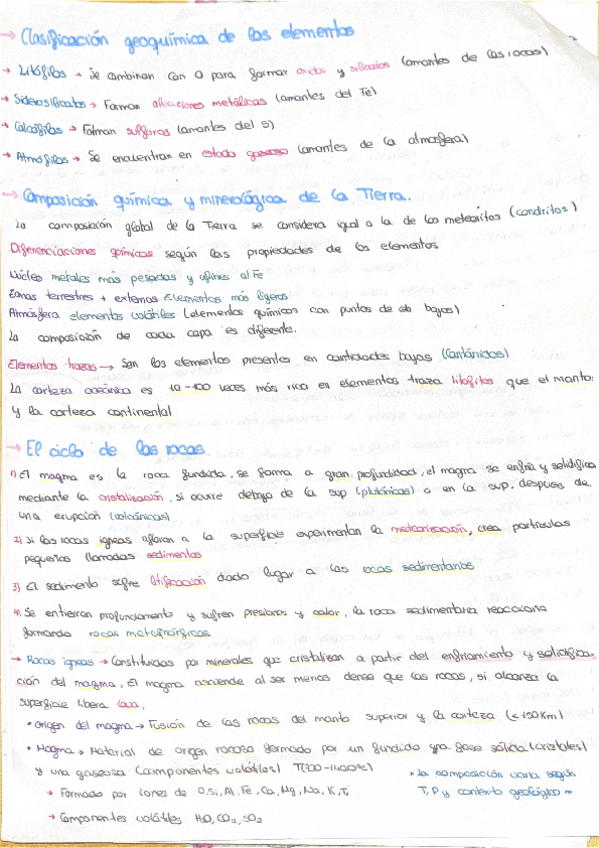 → Clasificación geoquímica de los elementos
→ Litófilos → Se combinan con O para formar oxidos y silicatos (amantes de las rocas)
→ Siderosificatos → Forman aleaciones metálicas (amantes del Fe)
→ Calcófilos → Forman sulfuros (amantes del S)
→ Atmófilos → Se encuentran en estado gaseoso (amantes de la atmosfera)
→ Composición química y mineralógica de la Tierra.
La composición global de la Tierra se considera igual a la de los meteoritos (condritos)
Diferenciaciones químicas según las propiedades de los elementos
Núcleo metales más pesados y afines al Fe
Zonas terrestres + externas Elementos más ligeros
Atmósfera elementos volátiles (elementos químicos con puntos de eb bajos)
La composición de cada capa es diferente.
Elementos trazas → Son los elementos presentes en cantidades bajas (lantánidos)
La corteza oceánica es 10-100 veces más rica en elementos traza litófilos que el manto.
y la corteza continental
→ El ciclo de las rocas
1) El magma es la roca fundida, se forma a gran profundidad, el magma se enfría y solidifica
mediante la cristalización, si ocurre debajo de la sup (plutónicas) o en la sup. despues de
una erupción (volcánicas)
2) Si las rocas igneas afloran a la superficie experimentan la meteorización, crea partículas
pequeñas llamadas sedimentos
3) El sedimento sufre litificación dado lugar a las rocas sedimentarias
4) Se entierran profundamente y sufren presiones y calor, la roca sedimentaria reacciona
formando rocas metamórficas
→ Rocas igneas → Constituidas por minerales que cristalizan a partir del enfriamiento y solidifica
ción del magma, El magma asciende al ser menos denso que las rocas, si alcanza la
superficie libera lava.
• Origen del magma → Fusión de las rocas del manto superior y la corteza (≤150Km)
• Magma → Material de origen rocoso formado por un fundido una fase sólida (cristales)
y una gaseosa (componentes volátiles) T(700-1400ºC)
* La composición varia según
T, P y contexto geológico *
→ Formado por iones de O, Si, Al, Fe, Ca, Mg, Na, K, Ti
→ Componentes volátiles H₂O, CO₂, SO₂